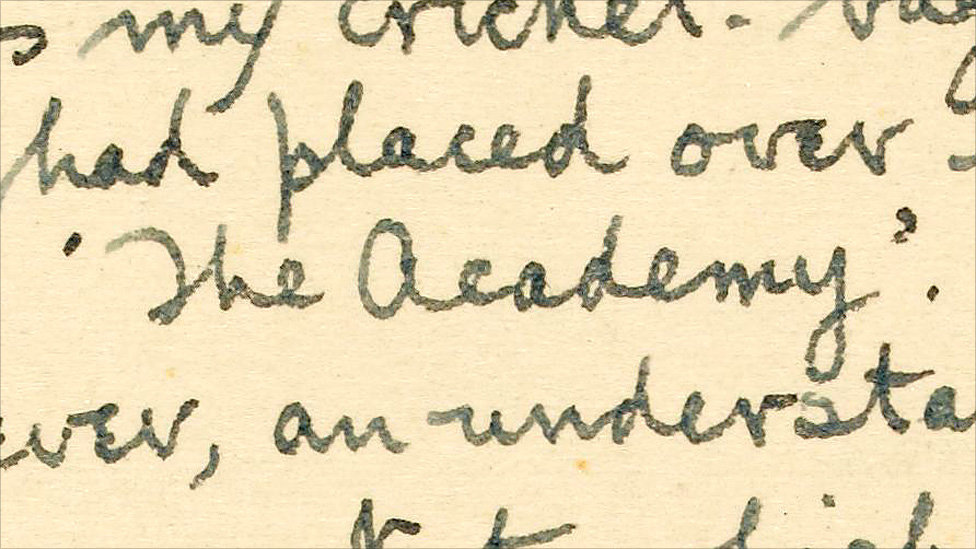 my cricket.
had placed over
'The Academy'.
ever, an understa